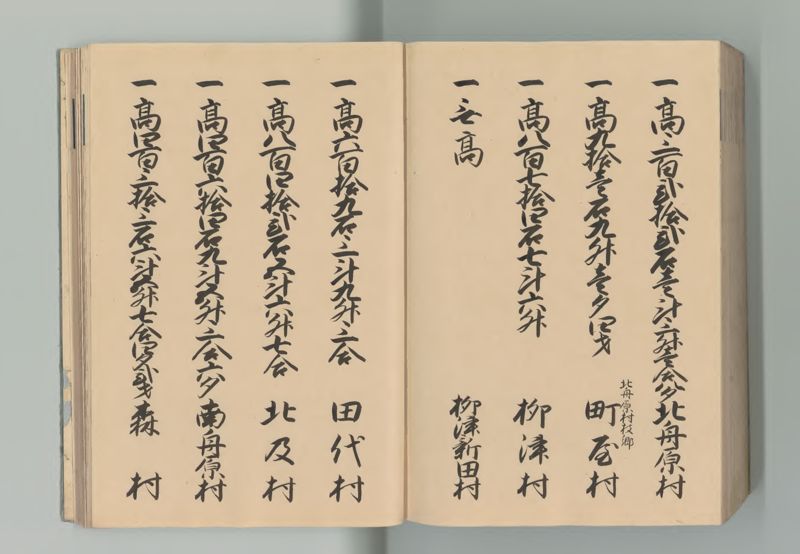 一高三百弐拾弐石壱斗六升壱合夕北舟原村
北舟原村枝郷
一高九拾壱石九升壱夕四才 町屋村
一高八百七拾四石七斗六升 柳津村
一无高 柳津新田村
一高六百拾九石三斗九升三合 田代村
一高八百四拾弐石五斗六升七合 北及村
一高四百六拾四石九斗五升三合六夕南舟原村
一高四百三拾三石六斗五升七合四夕弐才森村